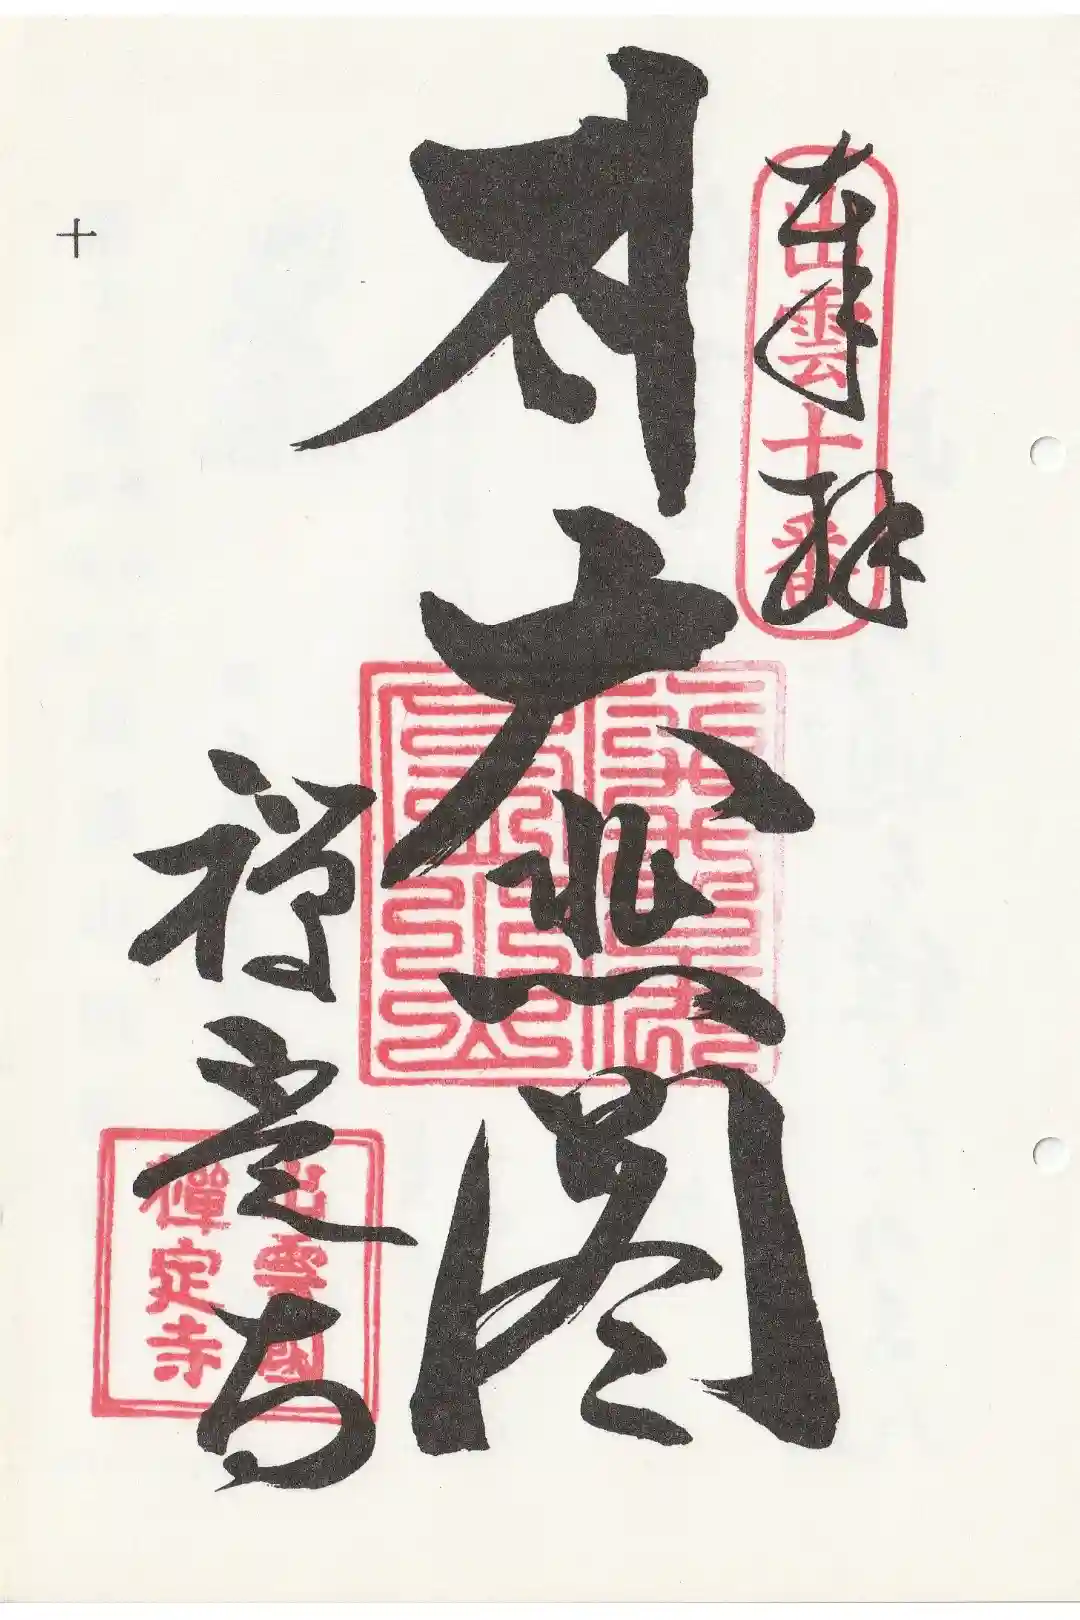 奉拝
出雲十番
𑖭大悲閣
禅定寺
出雲國
禪定寺
十